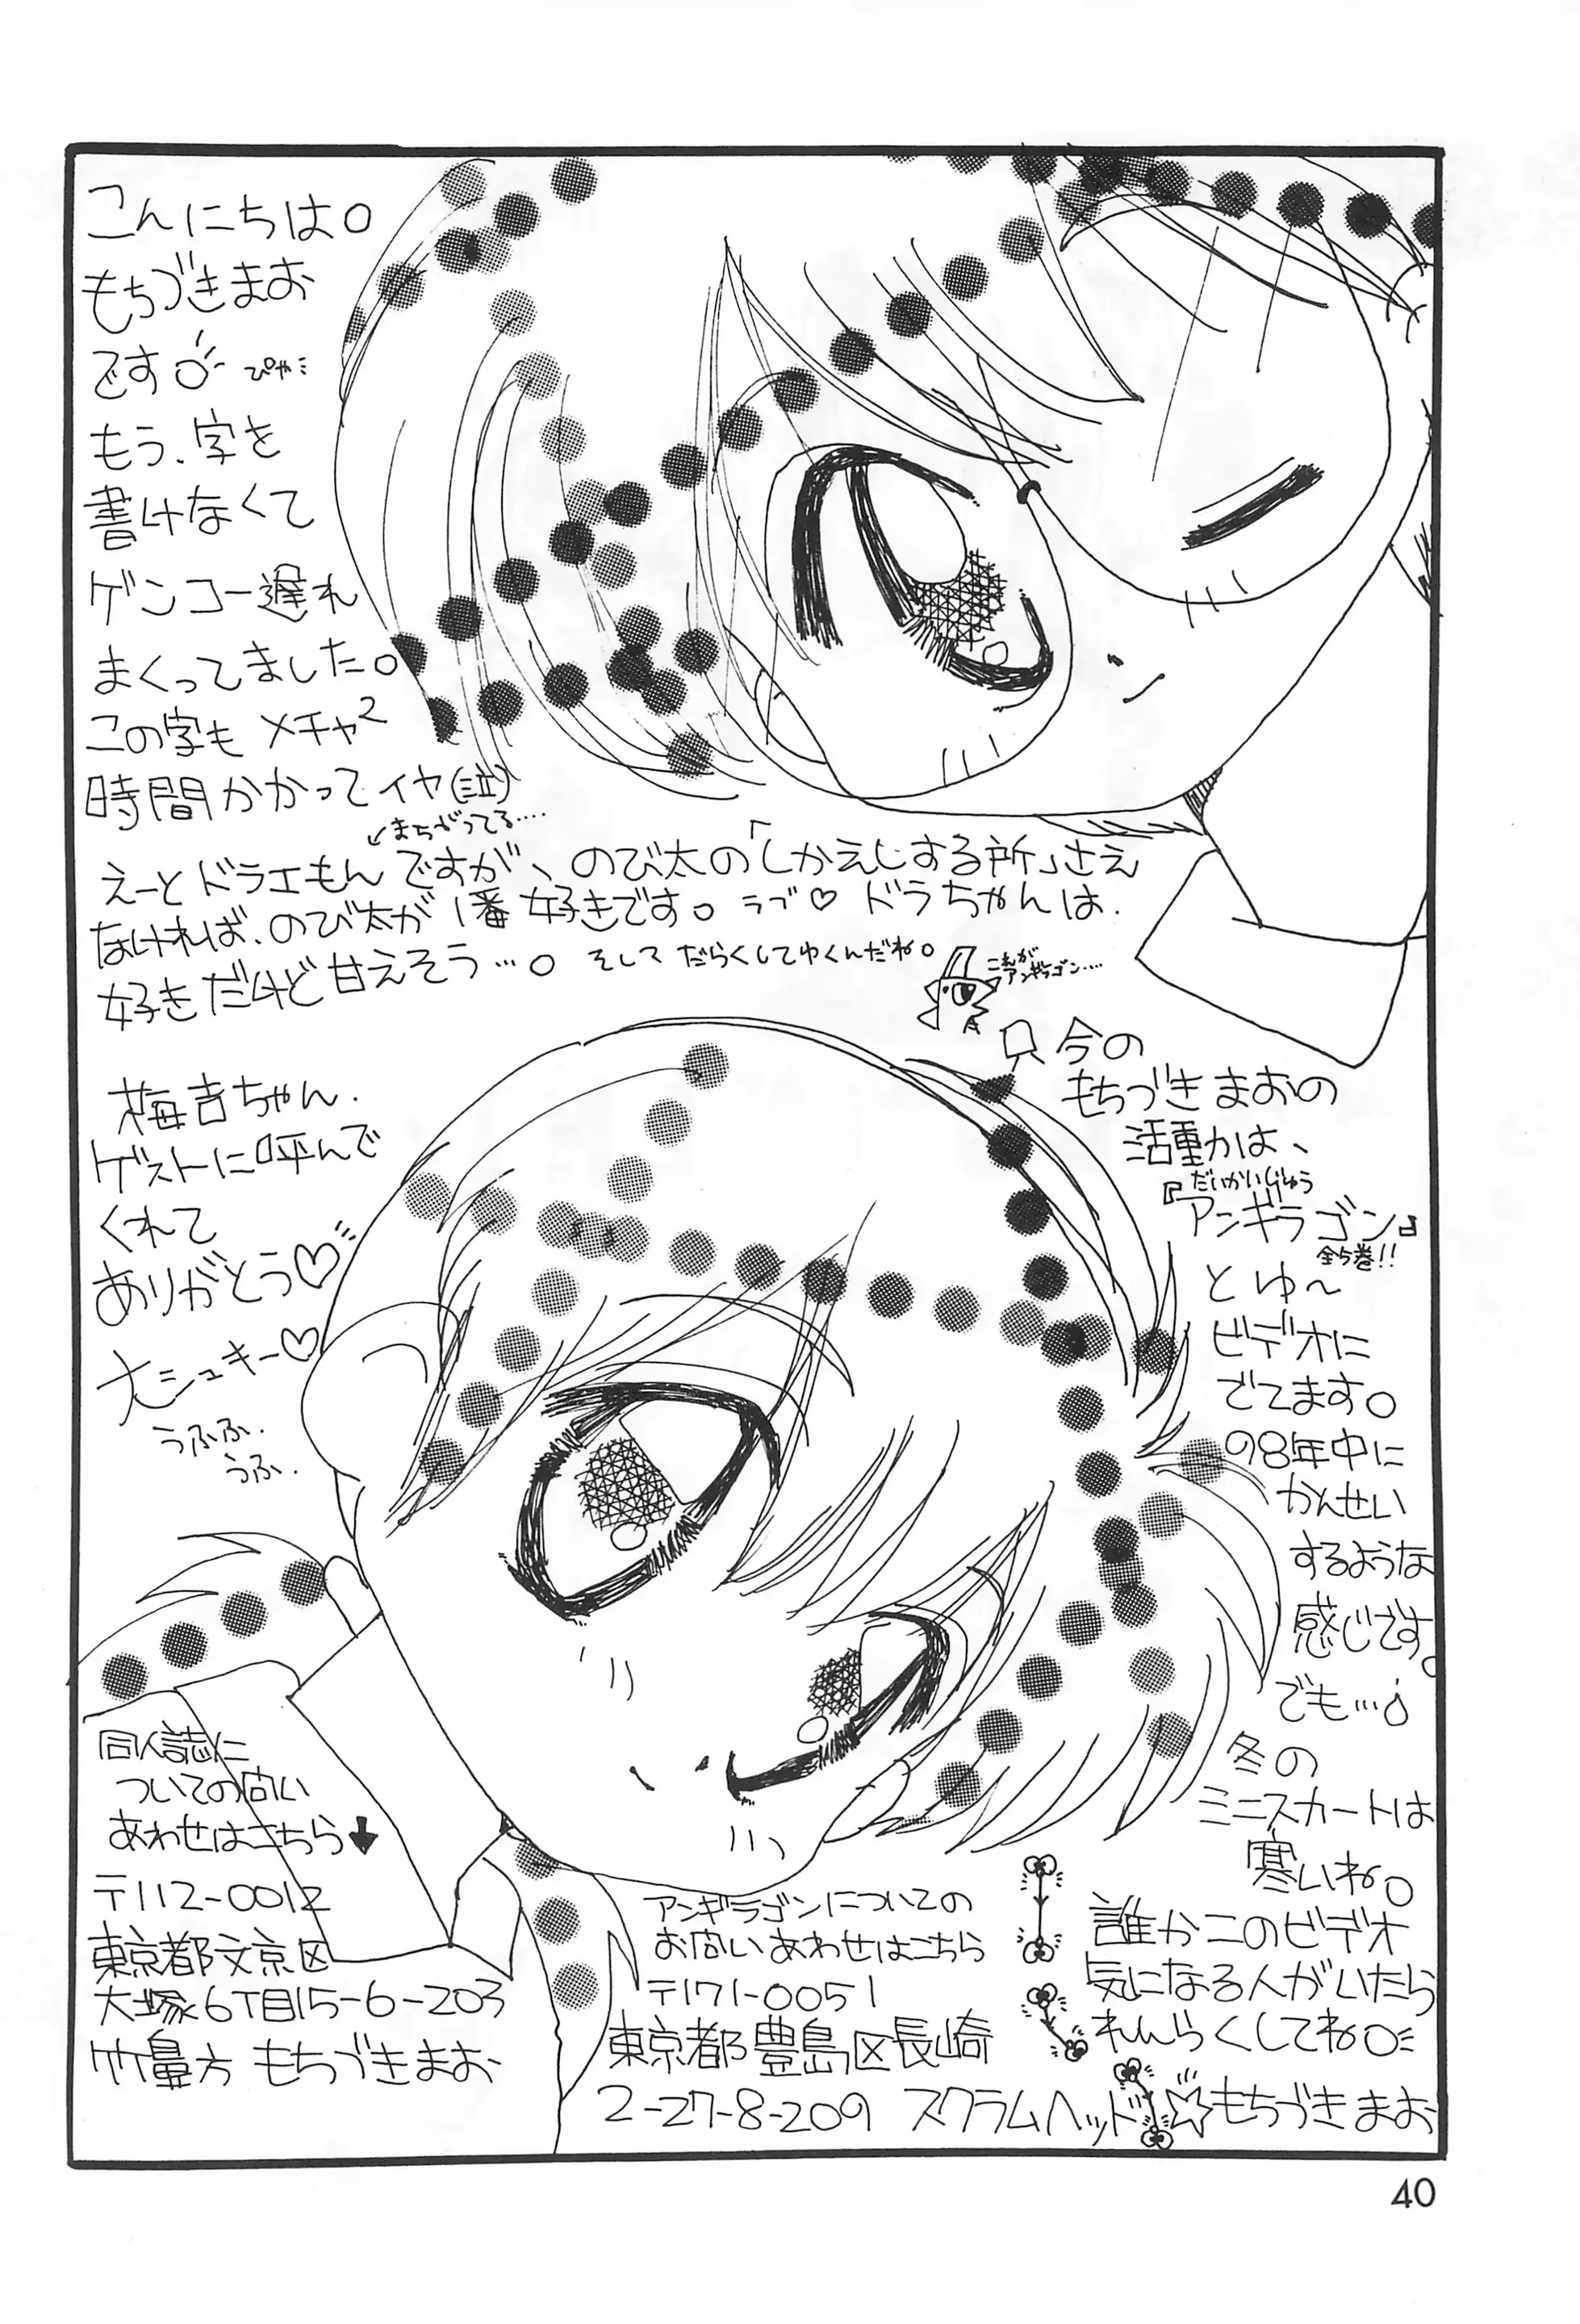 こんにちは。
もちづきまお
です ぴゃ
もう、字を
書けなくて
ゲンコー遅れ
まくってました。
この字も メチャ²
時間かかってイヤ(泣)
↙まちがってる‥‥
えーとドラエもんですが、のび太の「しかえしする所」さえ
なければ、のび太が1番好きです。ラブ♡ ドラちゃんは、
好きだけど甘えそう…。そして だらくしてゆくんだね。
これが
アンギラゴン‥‥
梅吉ちゃん、
ゲストに呼んで
くれて
ありがとう♡
大シュキー♡
うふふ、
うふ、
今の
もちづきまおの
活動は、
だいかいじゅう
『アンギラゴン』
全5巻!!
とゆ〜
ビデオに
でてます。
98年中に
かんせい
するような
感じです。
でも…
冬の
ミニスカートは
寒いね。
誰かこのビデオ
気になる人がいたら
れんらくしてねο
同人誌に
ついての向い
あわせはこちら↓
〒112-0012
東京都文京区
大塚6丁目15-6-203
方 もちづきまお
アンギラゴンについての
お向いあわせはこちら
〒171-0051
東京都豊島区長崎
2-27-8-209 スクラムヘッド☆もちづきまお
40